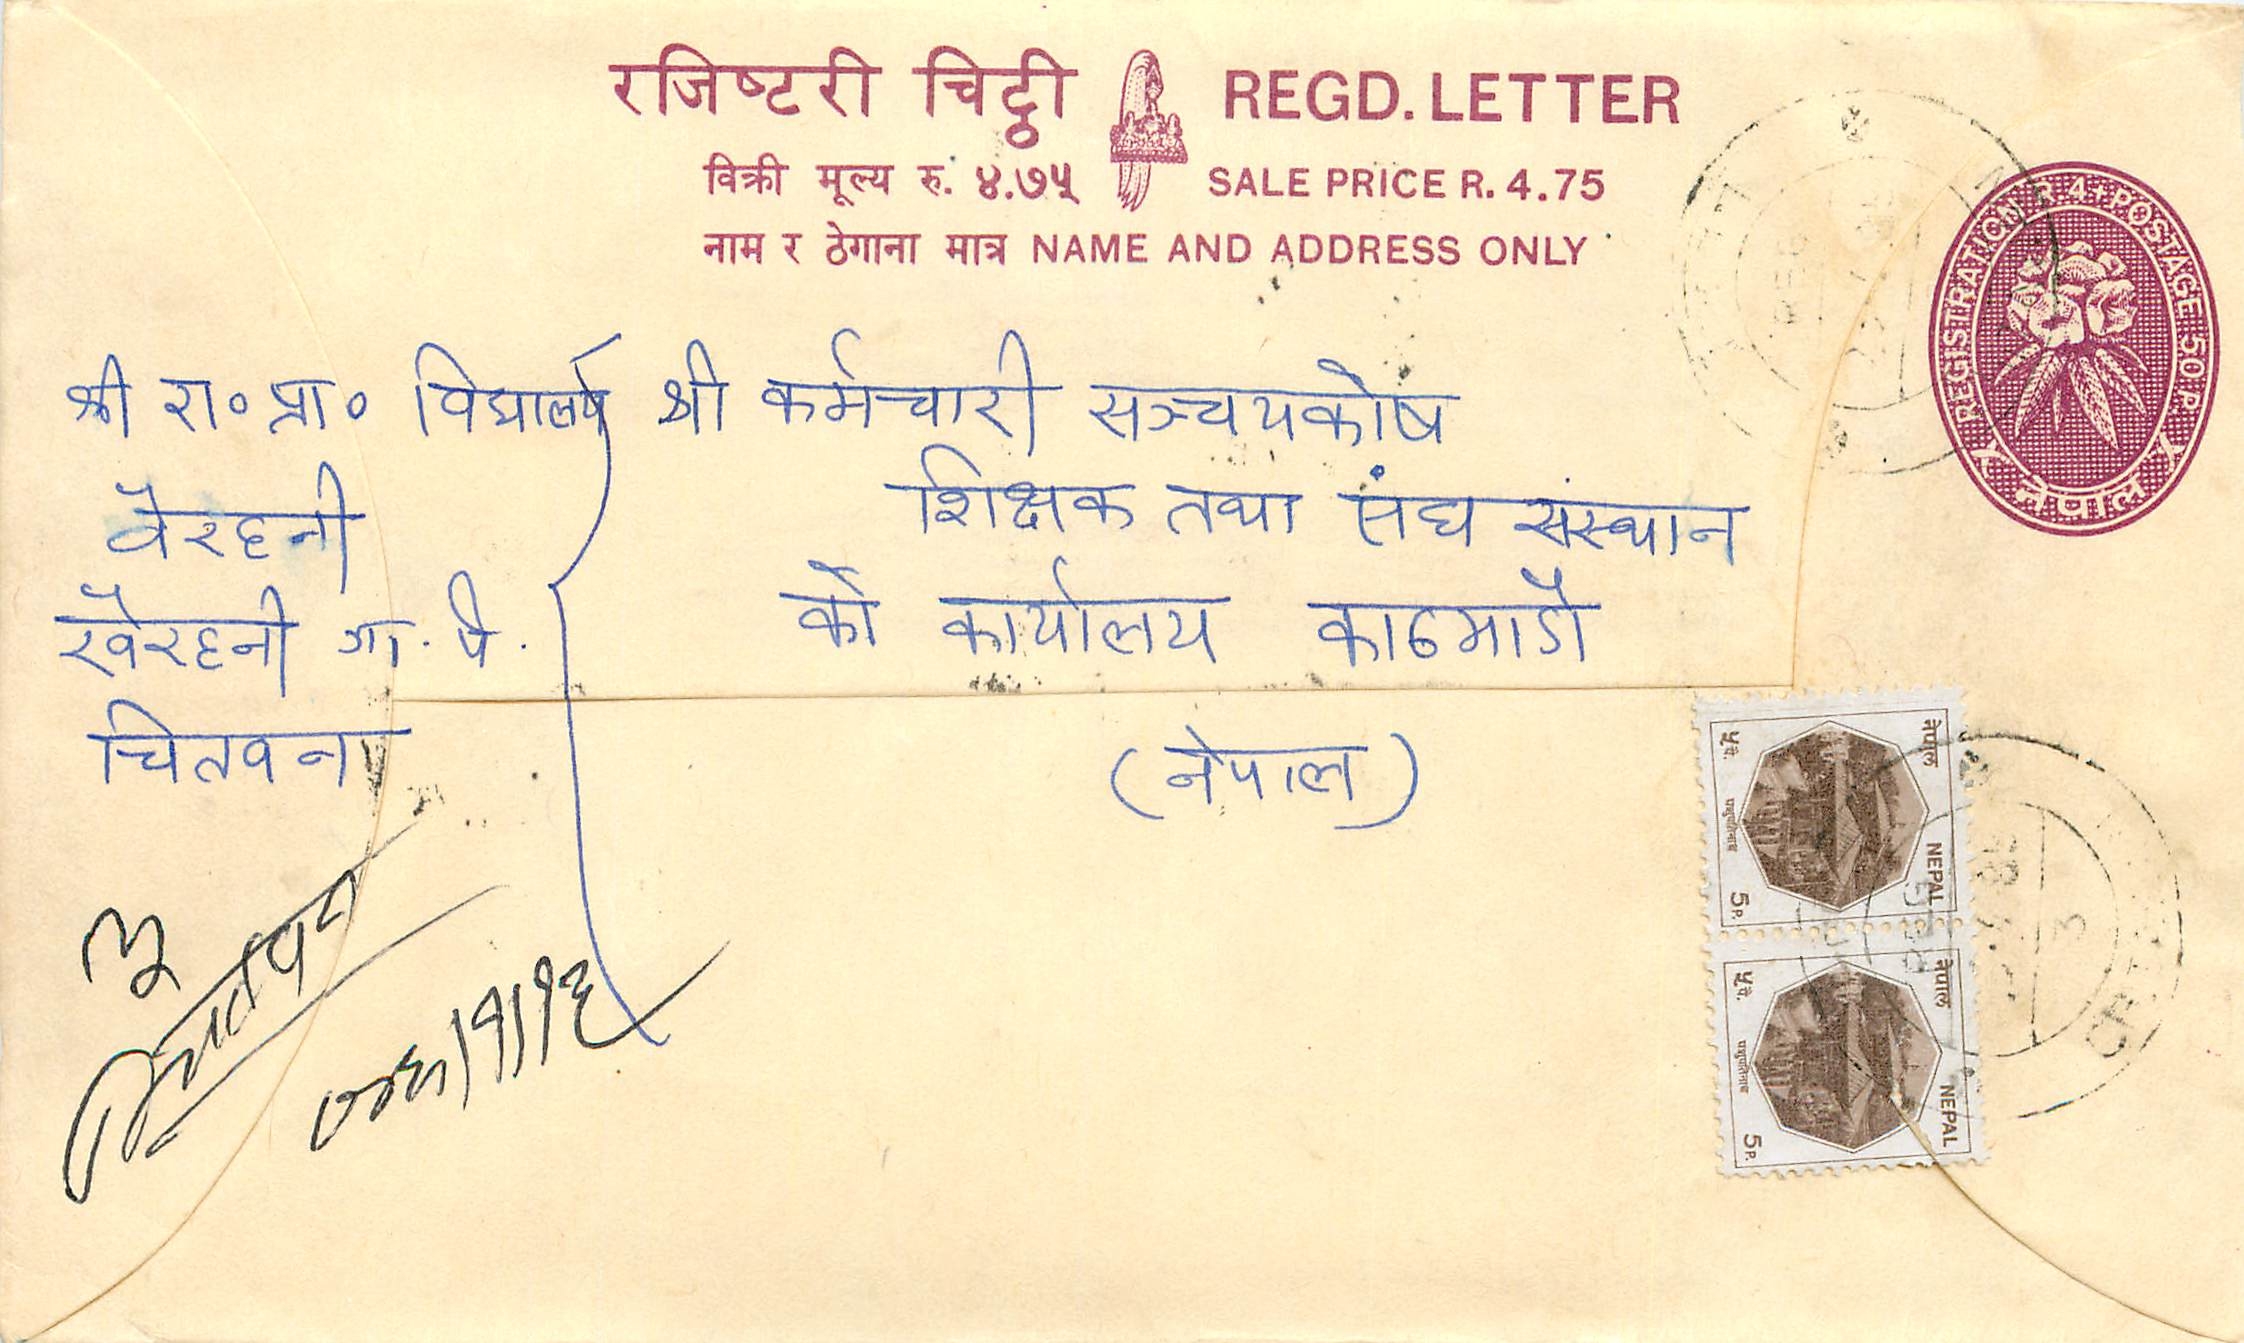 रजिष्टरी चिट्ठी REGD. LETTER
विक्री मूल्य रु. ४.७५ SALE PRICE R. 4.75
नाम र ठेगाना मात्र NAME AND ADDRESS ONLY
REGISTRATION R.4+POSTAGE 50 P.
नेपाल
श्री रा० प्रा० विद्यालय
वैरहनी
खैरहनी गा. पं.
चितवन
श्री कर्मचारी सञ्चयकोष
शिक्षक तथा संघ संस्थान
को कार्यालय काठमाडौं
(नेपाल)
नेपाल
५ पै.
पशुपतिनाथ
NEPAL
5 P.
नेपाल
५ पै.
पशुपतिनाथ
NEPAL
5 P.